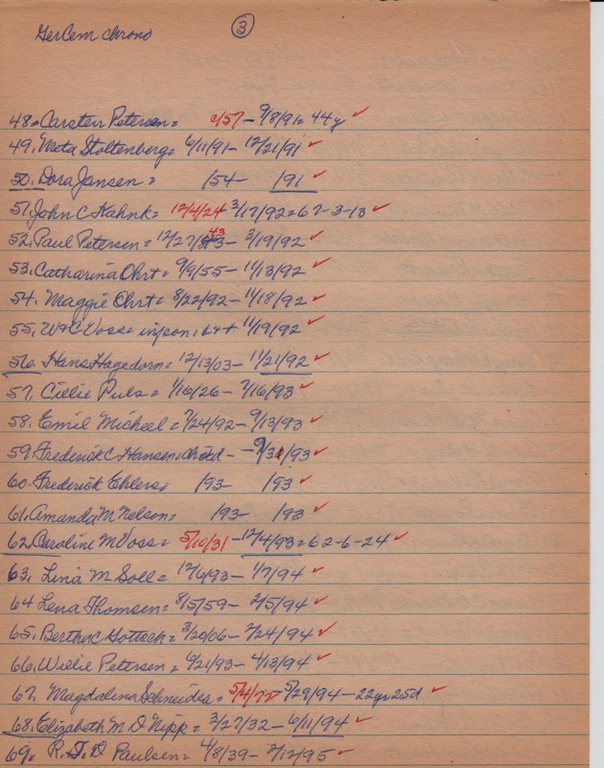 GerCem chrono ③
48. Carsten Petersen = c/57 - 9/8/91 = 44y ✓
49. Meta Stoltenberg = 6/11/91 - 12/21/91 ✓
50. Dora Jansen = /54 - /91 ✓
51. John C Kahnk = 12/4/24 - 3/17/92 = 67-3-13 ✓
52. Paul Petersen = 12/27/43 - 3/19/92 ✓
53. Catharina Ohrt = 9/9/55 - 11/13/92 ✓
54. Maggie Ohrt = 8/22/92 - 11/18/92 ✓
55. W+C Voss = inf son: b++ 11/19/92 ✓
56. Hans Hagedorn = 12/13/03 - 11/21/92 ✓
57. Cillie Puls = 1/16/26 - 7/16/93 ✓
58. Emil Micheel = 7/24/92 - 9/13/93 ✓
59. Frederick C Hansen: - 9/31/93 ✓
60. Frederick Ehlers = /93 - /93 ✓
61. Amanda M Nelson = /93 - /93 ✓
62. Caroline M Voss = 5/10/31 - 12/4/93 = 62-6-24 ✓
63. Lina M Soll = 12/6/93 - 1/7/94 ✓
64 Lena Thomsen = 8/5/59 - 2/5/94 ✓
65. Bertha C Gottsch = 3/20/06 - 2/24/94 ✓
66. Willie Petersen = 6/21/93 - 4/13/94 ✓
67. Magdalina Schneider = 5/4/72 - 5/29/94 - 22yr 25d ✓
68. Elizabeth M D Nipp = 3/27/32 - 6/11/94 ✓
69. R.J.D Paulsen = 4/8/39 - 2/12/95 ✓